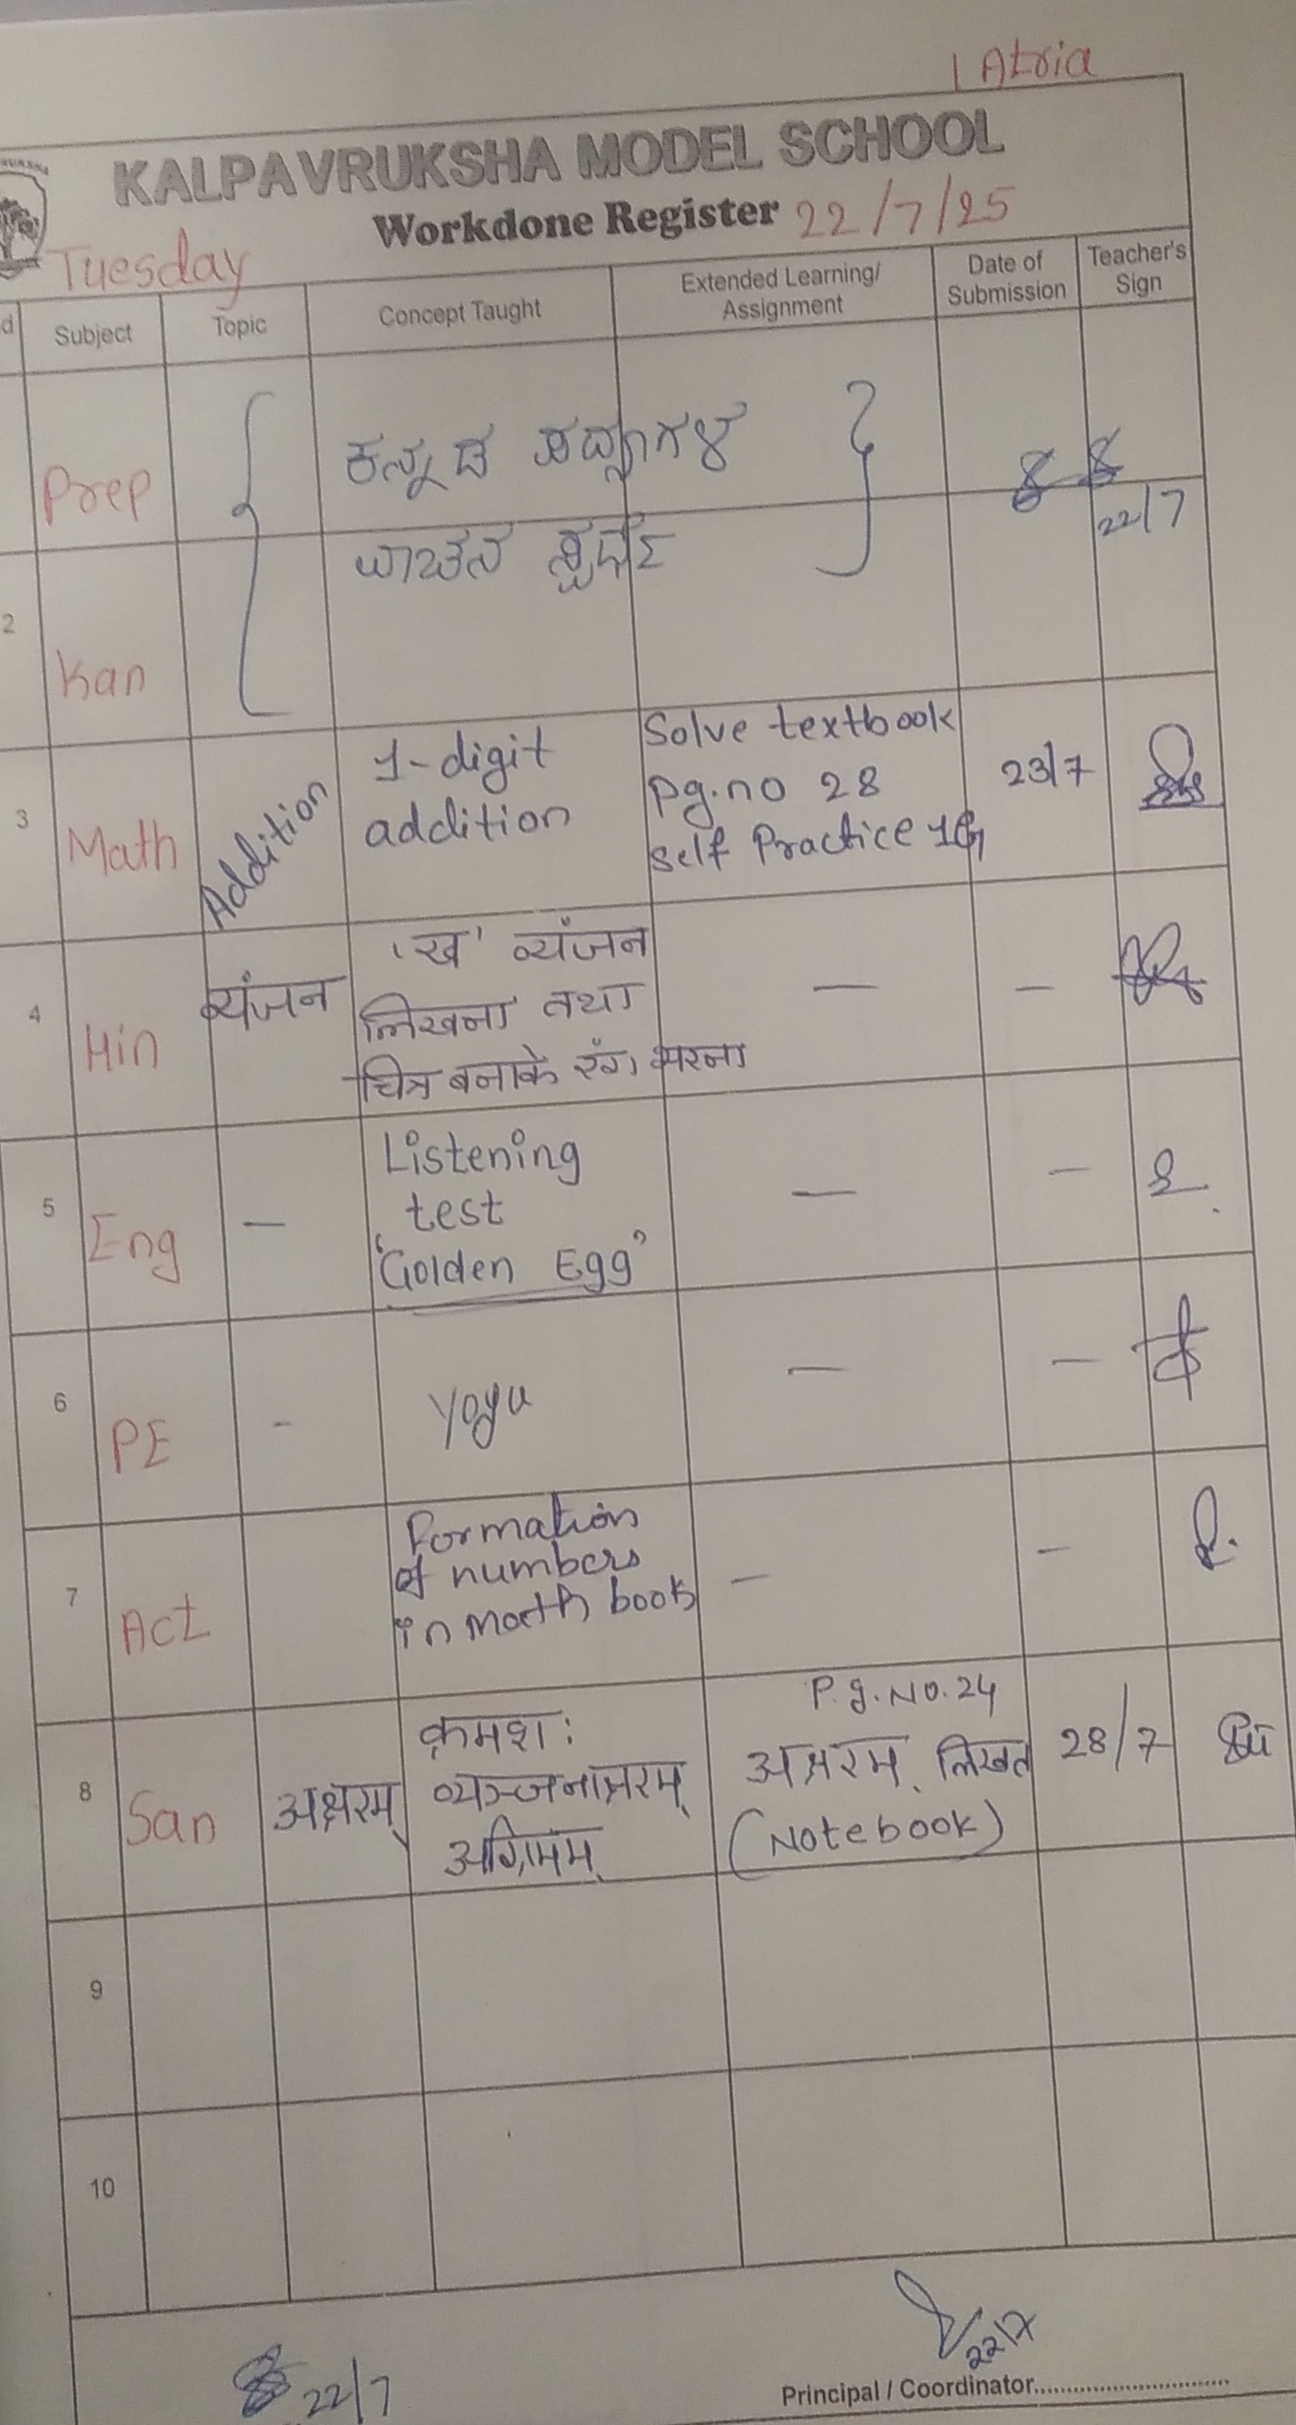 1 Atria
KALPAVRUKSHA MODEL SCHOOL
Workdone Register 22/7/25
Tuesday
Subject Topic Concept Taught Extended Learning/ Assignment Date of Submission Teacher's Sign
Prep
ಕನ್ನಡ ಪದ್ಯಗಳ
22/7
2 Kan
ವಾಚನ ಸ್ಪರ್ಧೆ
3 Math Addition
1-digit
addition
Solve textbook
Pg.no 28
self Practice 1G
23/7
4 Hin व्यंजन
'ख' व्यंजन
लिखना तथा
चित्र बनाके रंग भरना
— —
5 Eng —
Listening
test
'Golden Egg'
— —
6 PE - Yoga — —
7 Act
Formation
of numbers
in math book
— —
8 San अक्षरम्
क्रमशः
व्यञ्जनाक्षरम्
अग्रिमम्
P.g.No.24
अक्षरम् लिखत
(Notebook)
28/7
9
10
22/7
22/7
Principal / Coordinator